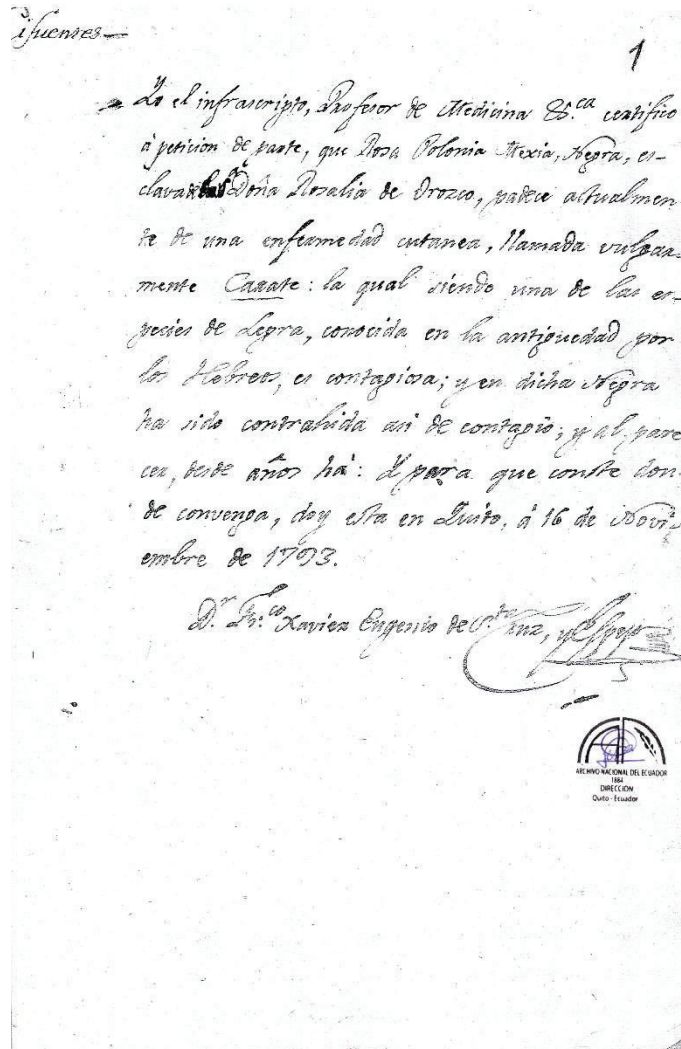 ifuentes
1
Yo el infrascripto, Profesor de Medicina &.ca certifico
à peticion de parte, que Rosa Polonia Mexia, Negra, es-
clava Doña Rosalia de Orozco, padece actualmen
te de una enfermedad cutanea, llamada vulgar-
mente Carate: la qual siendo una de las es-
pecies de Lepra, conocida en la antiguedad por
los Hebreos, es contagiosa; y en dicha Negra
ha sido contrahida asi de contagio; y al pare
cer, desde años hà: Y para que conste don-
de convenga, doy esta en Quito, à 16 de Novi-
embre de 1793.
D.r Fr.co Xavier Eugenio de S.ta Cruz, y Espejo
ARCHIVO NACIONAL DEL ECUADOR
1884
DIRECCION
Quito - Ecuador